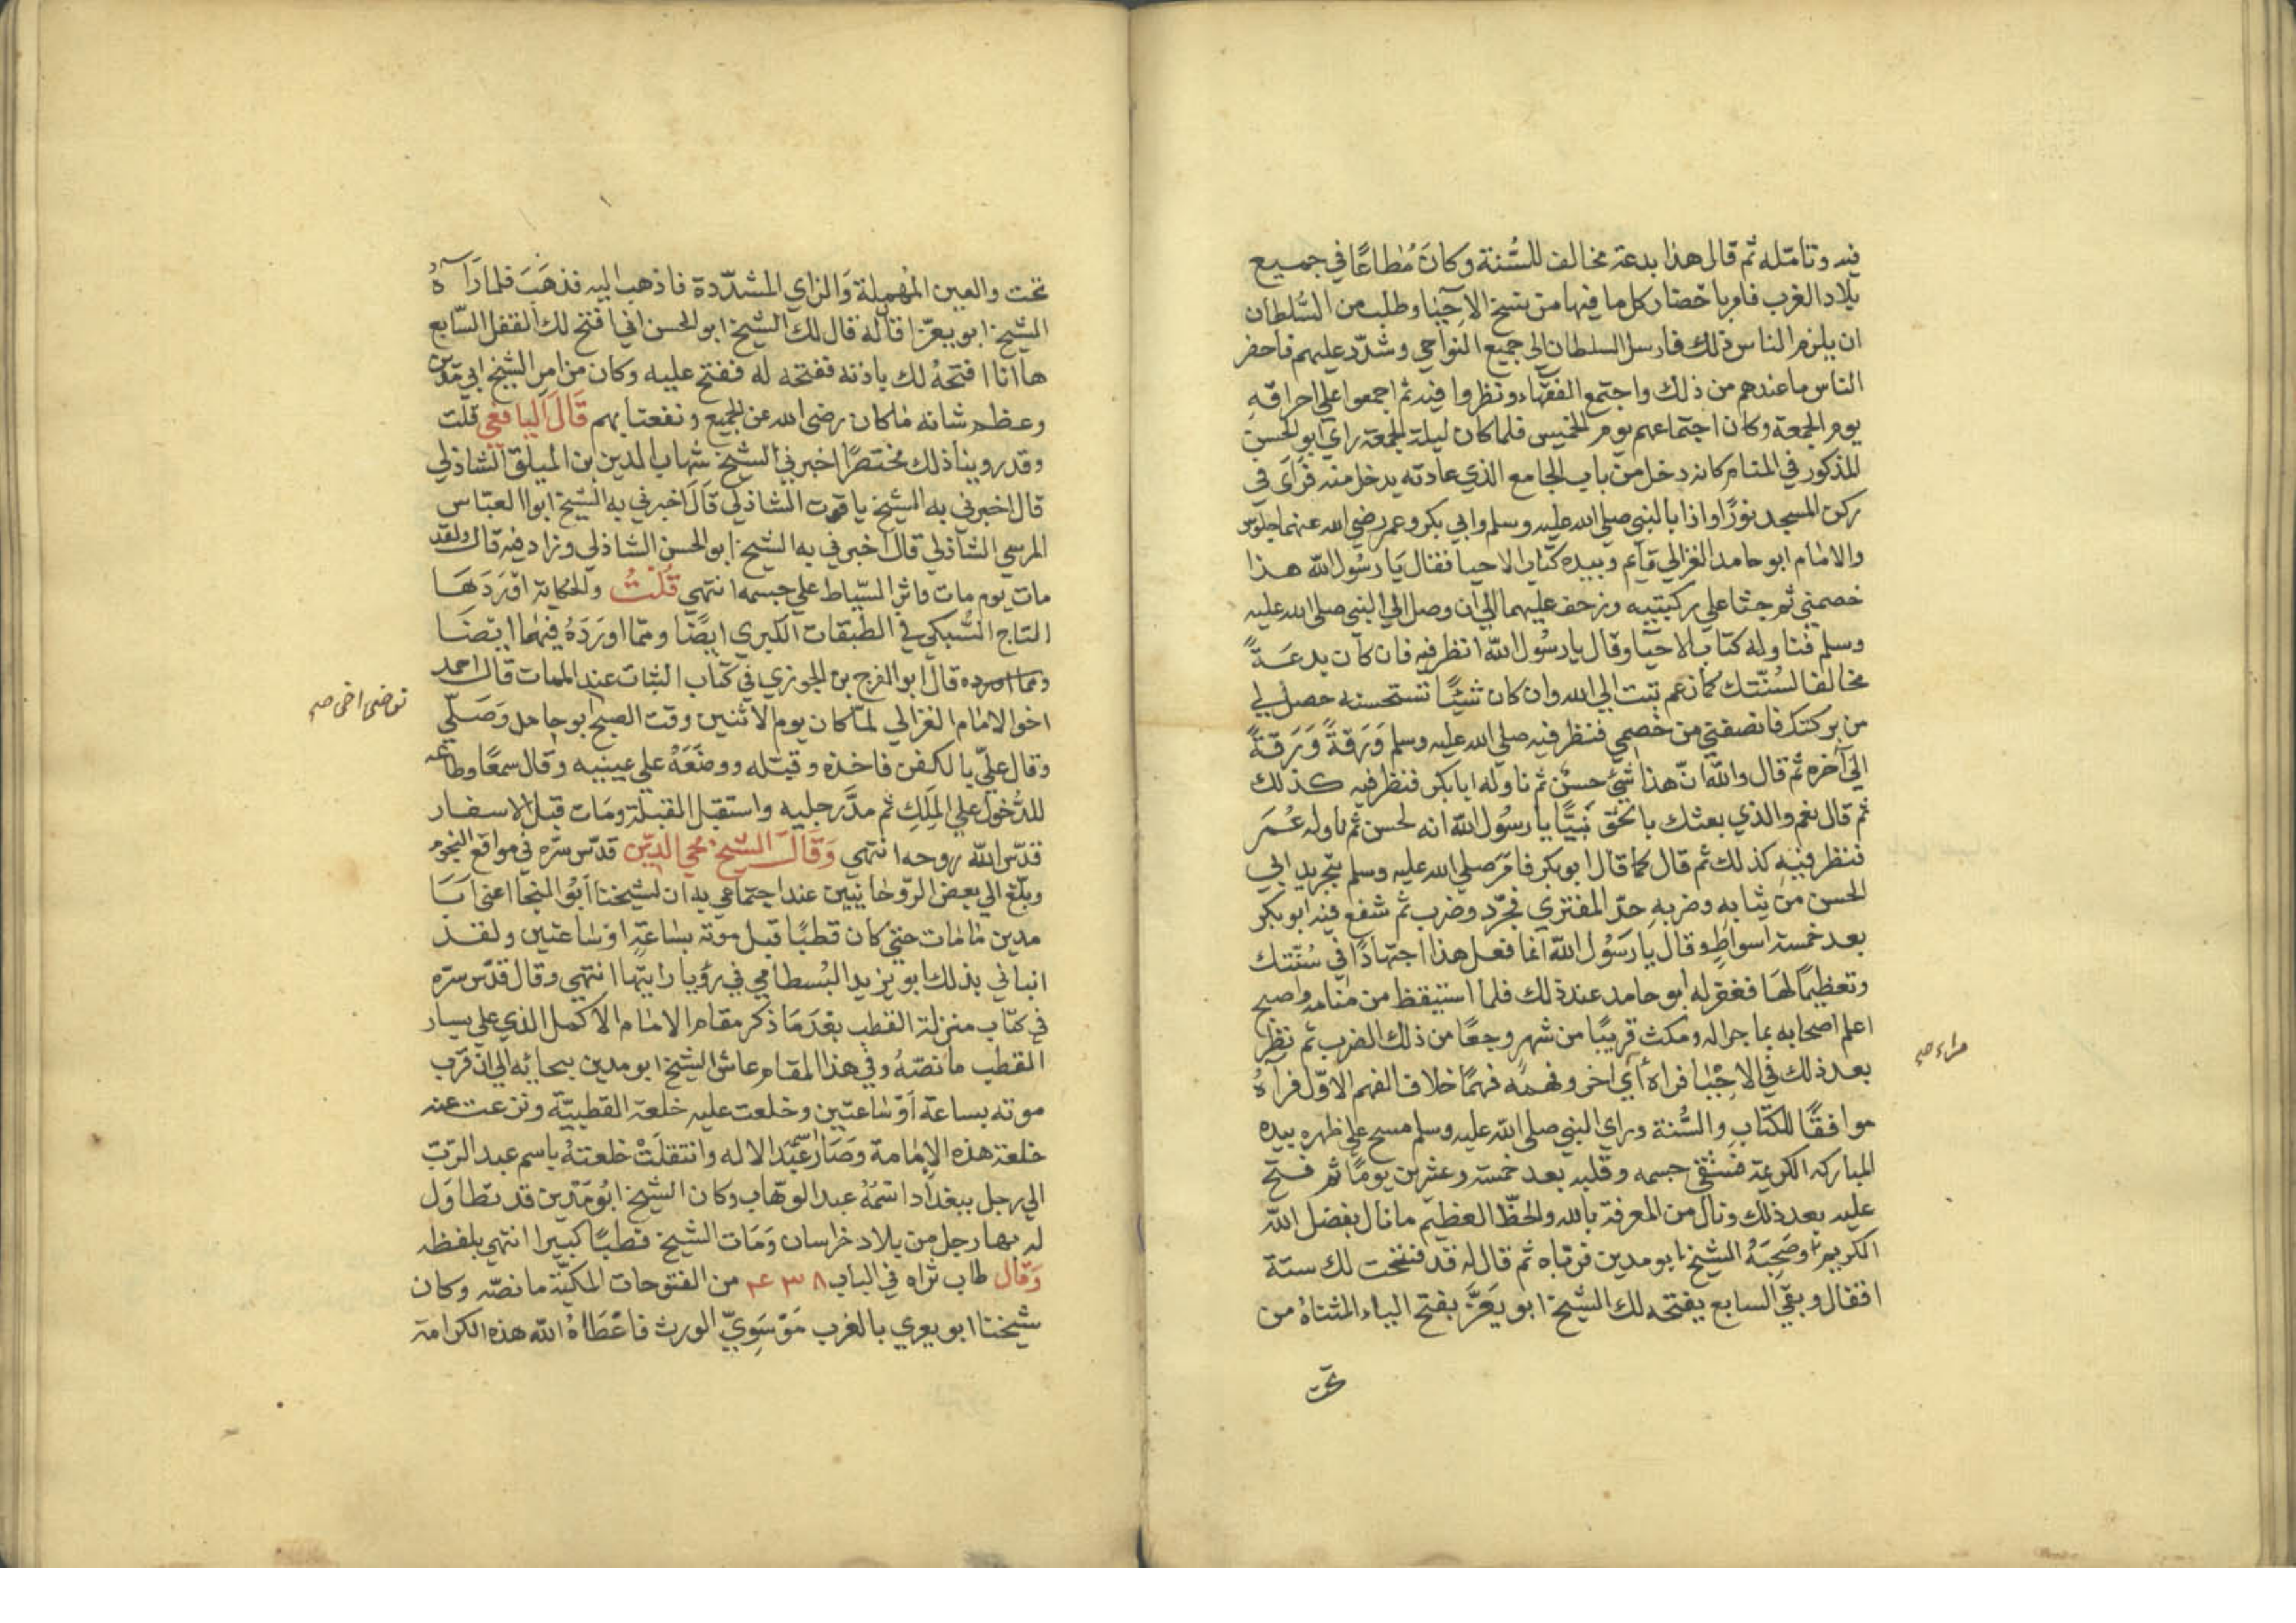 فيه وتأمّله ثم قال هذا بدعة مخالف للسُّنة وكانَ مُطاعًا في جميع
بلاد الغرب فامر باحضار كل ما فيها من نسخ الاحيا وطلب من السُّلطان
ان يلزم الناس ذلك فارسل السلطان الى جميع النواحي وشدّد عليهم فاحضر
الناس ما عندهم من ذلك واجتمع الفقهاء ونظروا فيه ثم اجمعوا علي احراقه
يوم الجمعة وكان اجتماعهم يوم الخميس فلما كان ليلة الجمعة راي ابو الحسن
المذكور في المنام كانه دخل من باب الجامع الذي عادته يدخل منه فرَأى في
ركن المسجد نورًا واذا بالنبي صلى الله عليه وسلم وابي بكر وعمر رضي الله عنهما جلوس
والامام ابو حامد الغزالي قايم وبيده كتاب الاحيا فقال يَا رسُول الله هذا
خصمني ثم جثا علي ركبتيه وزحف عليهما الي ان وصل الي النبي صلى الله عليه
وسلم فناوله كتاب الاحيا وقال يا رسُول الله انظر فيه فان كان بدعَةً
مخالفا لسُنّتك كما زعم تبت الي الله وان كان شيئًا تستحسنه حصل لي
من بركتك فانصفني من خصمي فنظر فيه صلي الله عليه وسلم وَرَقةً وَرَقةً
الي آخره ثم قال والله انّ هذا شيءٌ حسنٌ ثم ناوله ابا بكر فنظر فيه كذلك
ثم قال نعم والذي بعثك بالحق نَبيًّا يا رسُول الله انه لحسن ثم ناوله عُمَر
فنظر فيه كذلك ثم قال كما قال ابو بكر فامَر صلي الله عليه وسلم بتجريد ابي
الحسن من ثيابه وضربه حدّ المفتري فجرّد وضرب ثم شفع فيه ابو بكر
بعد خمسة اسواطٍ وقال يا رسُول الله انما فعل هذا اجتهادًا في سُنّتك
وتعظيمًا لهَا فغفر له ابو حامد عند ذلك فلما استيقظ من منامه واصبح
اعلم اصحابه بما جرا له ومكث قريبًا من شهرٍ وجعًا من ذلك الضرب ثم نظر
بعد ذلك في الاحيا فراه رأي اخر وفهمه فهمًا خلاف الفهم الاوّل فرآهُ
مراه صح
موافقًا للكتاب والسُّنة وراي النبي صلى الله عليه وسلم مسح علي ظهره بيده
المباركه الكريمة فشفي جسمه وقلبه بعد خمسة وعشرين يومًا ثم فتح
عليه بعد ذلك ونال من المعرفة بالله والحظّ العظيم ما نال بفضل الله
الكريم وصَحِبَهُ الشيخ ابو مدين فرباه ثم قال له قد فتحت لك ستة
اقفال وبقي السابع يفتحه لك الشيخ ابو يَعَزَّ بفتح الياء المثناهُ من
تحت
تحت والعين المُهملة وَالزاي المشدّدة فاذهب اليه فذهَبَ فلما رَآهُ
الشيخ ابو يعزّا قال له قال لك الشيخ ابو الحسن اني افتح لك القفل السّابع
ها انا افتحهُ لك باذنه ففتحه له ففتح عليه وكان من امر الشيخ ابي مَدين
وعظم شانه ما كان رضي الله عن الجميع ونفعنا بهم قَالَ اليافعي قلت
وقد روينا ذلك مختصرًا اخبرني الشيخ شهاب الدين بن الميلق الشاذلي
قال اخبرني به الشيخ ياقوت الشاذلي قَالَ اخبرني به الشيخ ابوا العبّاس
المرسي الشاذلي قال اخبرني به الشيخ ابو الحسن الشاذلي وزاد فيه قال ولقد
مات يوم مات واثر السّياط علي جسمه انتهي قُلتُ والحكاية اوْرَدَهَا
التاج السُّبكي في الطبقات الكبري ايضًا ومّما اورَدَهُ فيهما ايضَا
قال ابو الفرج بن الجوزي في كتاب الثبات عند الممات قال احمد
اخو الامَام الغزالي لمّا كان يوم الاثنين وقت الصبح ابو حامد وَصَلّي
توضي اخي صح
وقال عليّ بالكفن فاخذه وقبّله ووضَعَهُ علي عينيه وقال سمعًا وطاعه
للدُّخول علي المَلِكِ ثم مدَّ رجليه واستقبل القبلة ومَات قبل الاسفار
قدّس الله روحه انتهي وَقَالَ الشيخ مُحي الدّين قدّس سرّه في مواقع النجوم
وبلّغ الي بعض الرّوحانيين عند اجتماعي به ان لشيخنا ابُو النجا اعني ابَا
مدين ما مات حتي كان قطبًا قبل موته بساعَةٍ او ساعتين ولقد
انباني بذلك ابو يزيد البُسطامي في رؤيا رايتها انتهي وقال قدّس سرّه
في كتاب منزلة القطب بعْدَ مَا ذكر مقام الامَام الاكمل الذي علي يسار
القطب ما نصّهُ وفي هذا المقام عاش الشيخ ابو مدين ببجايه الي ان قرب
موته بساعة أوْ سَاعتين وخلعت عليه خلعة القطبيّة ونزعت عنه
خلعة هذه الإمامة وصَار اسمُه عَبْد الاله وانتقلَتْ خلعتهُ باسم عبد الرّبّ
الي رجل ببغداد اسْمُهُ عبد الوهّاب وكان الشيخ ابُو مَدين قد تطاوَل
له بها رجل من بلاد خراسان وَمَات الشيخ قطبًا كبيرا انتهي بلفظه
وَقال طاب ثراه في الباب ٤٣٨ من الفتوحات المكيّة ما نصّه وكان
شيخنا ابو يعري بالغرب مَوْسَوِيّ الورث فاعْطَاهُ الله هذه الكرامة